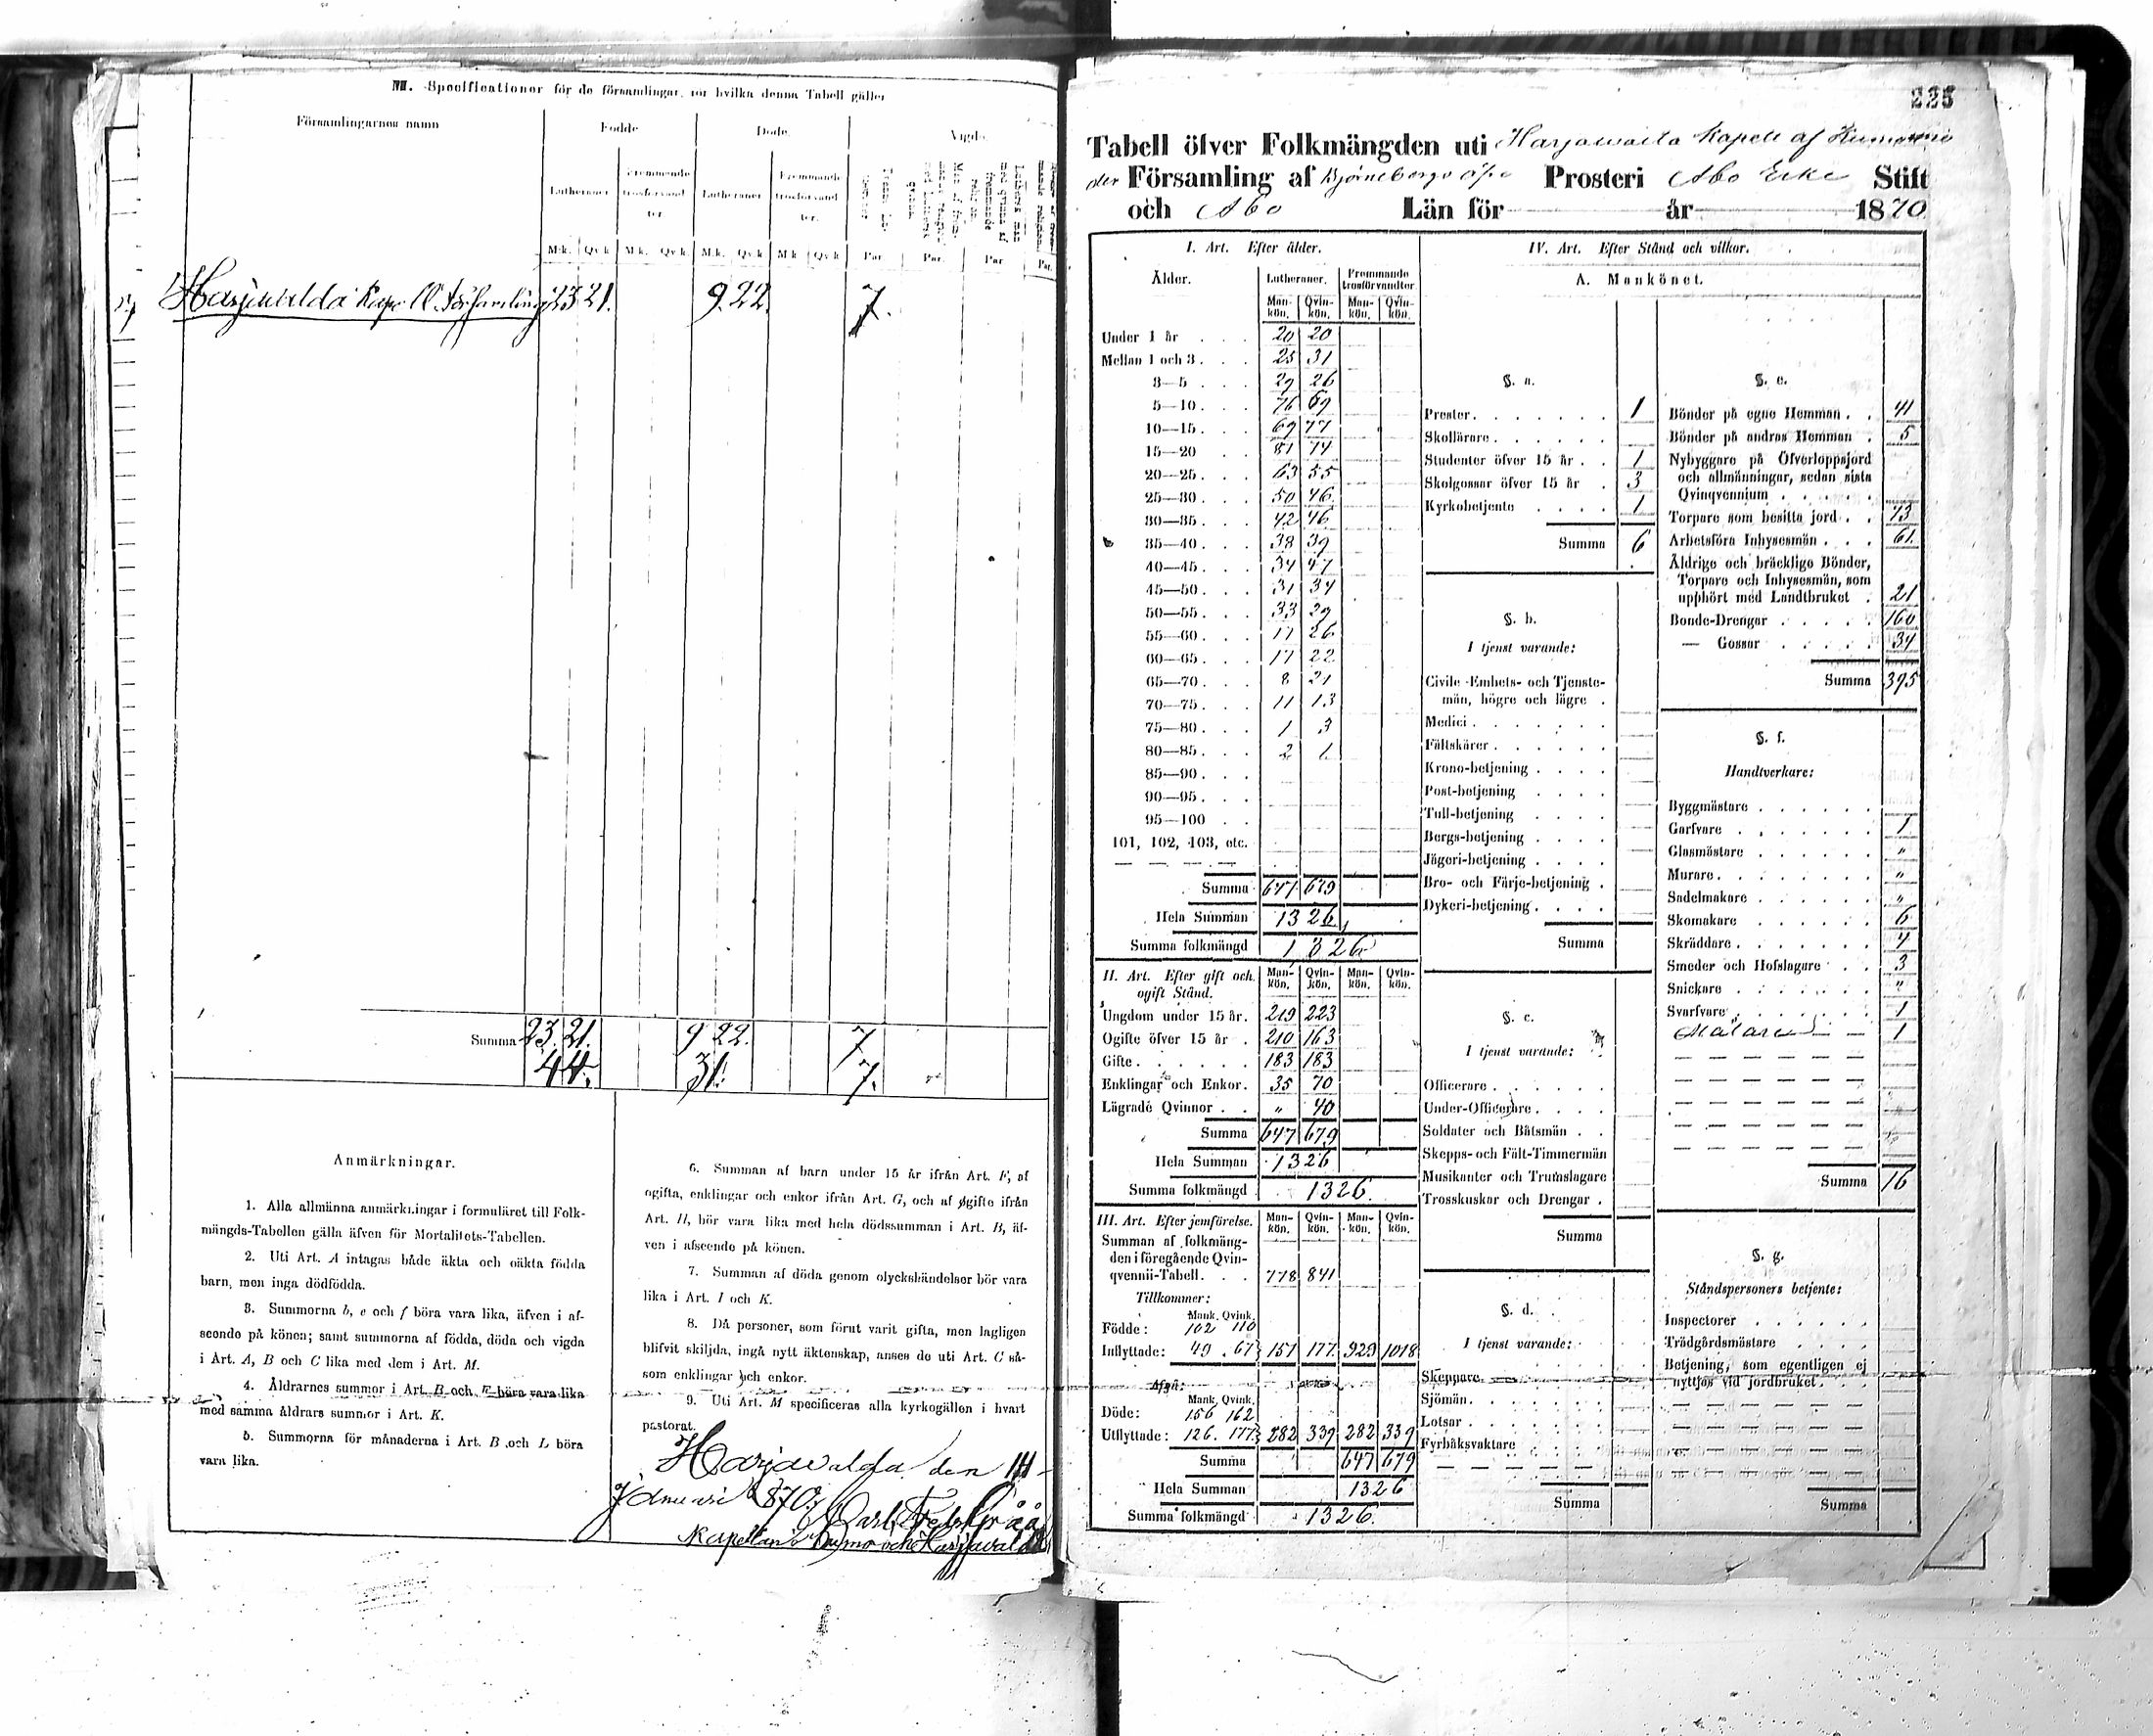 M. Specificationer för de församlingar, för hvilka denna Tabell gäller
Församlingarnes namn
Födde
Döde
Vigde
Lutheraner
Fremmande trosförvandter.
Lutheraner
Fremmande trosförvandter.
M:k. Qv:k. M:k. Qv:k. M:k. Qv:k. M:k. Qv:k. Par. Par. Par. Par.
Harjavalda Kapell Församling 23 21. 9. 22. 7.
Summa 23. 21. 9 22. 7
44. 31. 7.
Anmärkningar.
1. Alla allmänna anmärkningar i formuläret till Folk-
mängds-Tabellen gälla äfven för Mortalitets-Tabellen.
2. Uti Art. A intagas både äkta och oäkta födda
barn, men inga dödfödda.
3. Summorna b, e och f böra vara lika, äfven i af-
seende på könen; samt summorna af födda, döda och vigda
i Art. A, B och C lika med dem i Art. M.
4. Åldrarnes summor i Art. B och E böra vara lika
med samma åldrars summor i Art. K.
5. Summorna för månaderna i Art. B och L böra
vara lika.
6. Summan af barn under 15 år ifrån Art. F, af
ogifta, enklingar och enkor ifrån Art. G, och af ogifte ifrån
Art. H, bör vara lika med hela dödssumman i Art. B, äf-
ven i afseende på könen.
7. Summan af döda genom olyckshändelser bör vara
lika i Art. I och K.
8. Då personer, som förut varit gifta, men lagligen
blifvit skiljda, ingå nytt äktenskap, anses de uti Art. C så-
som enklingar och enkor.
9. Uti Art. M specificeras alla kyrkogällen i hvart
pastorat.
Harjavalda den 14
Januari 1870.
Carl Fredr.
Kapellan i Kumo och Harjavalda
225
Tabell öfver Folkmängden uti Harjavalta Kapell af Kumo
der Församling af Björneborgs öfre Prosteri Åbo Erke Stift
och Åbo Län för år 1870
I. Art. Efter ålder.
Ålder. Lutheraner. Fremmande trosförvandter.
Man-kön. Qvin-kön. Man-kön. Qvin-kön.
Under 1 år . . . 20 20
Mellan 1 och 3 . . . 25 31
3—5 . . . 29 26
5—10 . . . 76 69
10—15 . . . 69 77
15—20 . . 81 74
20—25 . . . 63 55
25—30 . . . 50 46
30—35 . . . 42 46
35—40 . . . 38 39
40—45 . . . 34 47
45—50 . . . 31 34
50—55 . . . 33 29
55—60 . . . 17 26
60—65 . . . 17 22
65—70 . . . 8 21
70—75 . . . 11 13
75—80 . . . 1 3
80—85 . . . 2 1
85—90 . . .
90—95 . . .
95—100 . .
101, 102, 103, etc.
Summa 647 679
Hela Summan 1326
Summa folkmängd 1326
II. Art. Efter gift och ogift Stånd.
Man-kön. Qvin-kön. Man-kön. Qvin-kön.
Ungdom under 15 år. 219 223
Ogifte öfver 15 år . 210 163
Gifte . . . . . . 183 183
Enklingar och Enkor. 35 70
Lägrade Qvinnor . . " 40
Summa 647 679
Hela Summan 1326
Summa folkmängd 1326.
III. Art. Efter jemförelse.
Man-kön. Qvin-kön. Man-kön. Qvin-kön.
Summan af folkmäng-
den i föregående Qvin-
qvennii-Tabell . . . 778 841
Tillkommer:
Mank. Qvink.
Födde: 102 110
Inflyttade: 49. 67 151 177 929 1018
Afgå:
Mank. Qvink.
Döde: 156 162
Utflyttade: 126. 177 282 339 282 339
Summa 647 679
Hela Summan 1326
Summa folkmängd 1326.
IV. Art. Efter Stånd och vilkor.
A. Mankönet.
§. a.
Prester . . . . . . . 1
Skollärare . . . . . .
Studenter öfver 15 år . . 1
Skolgossar öfver 15 år . 3
Kyrkobetjente . . . . 1
Summa 6
§. b.
I tjenst varande:
Civile Embets- och Tjenste-
män, högre och lägre .
Medici . . . . . . .
Fältskärer . . . . . .
Krono-betjening . . . .
Post-betjening . . . .
Tull-betjening . . . .
Bergs-betjening . . . .
Jägeri-betjening . . . .
Bro- och Färje-betjening .
Dykeri-betjening . . . .
Summa
§. c.
I tjenst varande:
Officerare . . . . . .
Under-Officerare . . . .
Soldater och Båtsmän . .
Skepps- och Fält-Timmermän
Musikanter och Trumslagare
Trosskuskar och Drengar .
Summa
§. d.
I tjenst varande:
Skeppare
Sjömän . . . . . . .
Lotsar . . . . . . .
Fyrbåksvaktare . . . .
Summa
§. e.
Bönder på egne Hemman . . 41
Bönder på andras Hemman . 5
Nybyggare på Öfverloppsjord
och allmänningar, sedan sista
Qvinqvennium . . . . .
Torpare som besitta jord . . 73
Arbetsföra Inhysesmän . . . 61.
Åldrige och bräcklige Bönder,
Torpare och Inhysesmän, som
upphört med Landtbruket . 21
Bonde-Drengar . . . . . 160
— Gossar . . . . . 34
Summa 395
§. f.
Handtverkare:
Byggmästare . . . . . .
Garfvare . . . . . . . 1
Glasmästare . . . . . . "
Murare . . . . . . . "
Sadelmakare . . . . . . "
Skomakare . . . . . . 6
Skräddare . . . . . . . 4
Smeder och Hofslagare . . 3
Snickare . . . . . . . "
Svarfvare . . . . . . . 1
Målare — — 1
Summa 16
§. g.
Ståndspersoners betjente:
Inspectorer . . . . . .
Trädgårdsmästare . . . .
Betjening, som egentligen ej
nyttjas vid jordbruket . . .
Summa